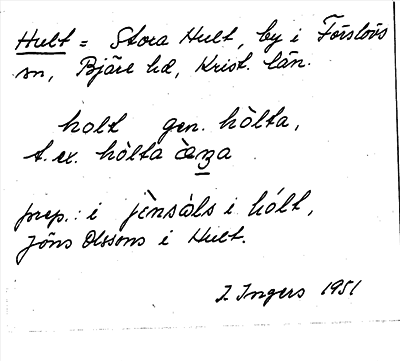 Hult = Stora Hult, by i Förslövs
sn, Bjäre hd, Krist. län.
holt gen. hòlta,
t.ex. hòlta
prep.: i jènsàls i hólt,
Jöns Olssons i Hult.
I. Ingers 1951